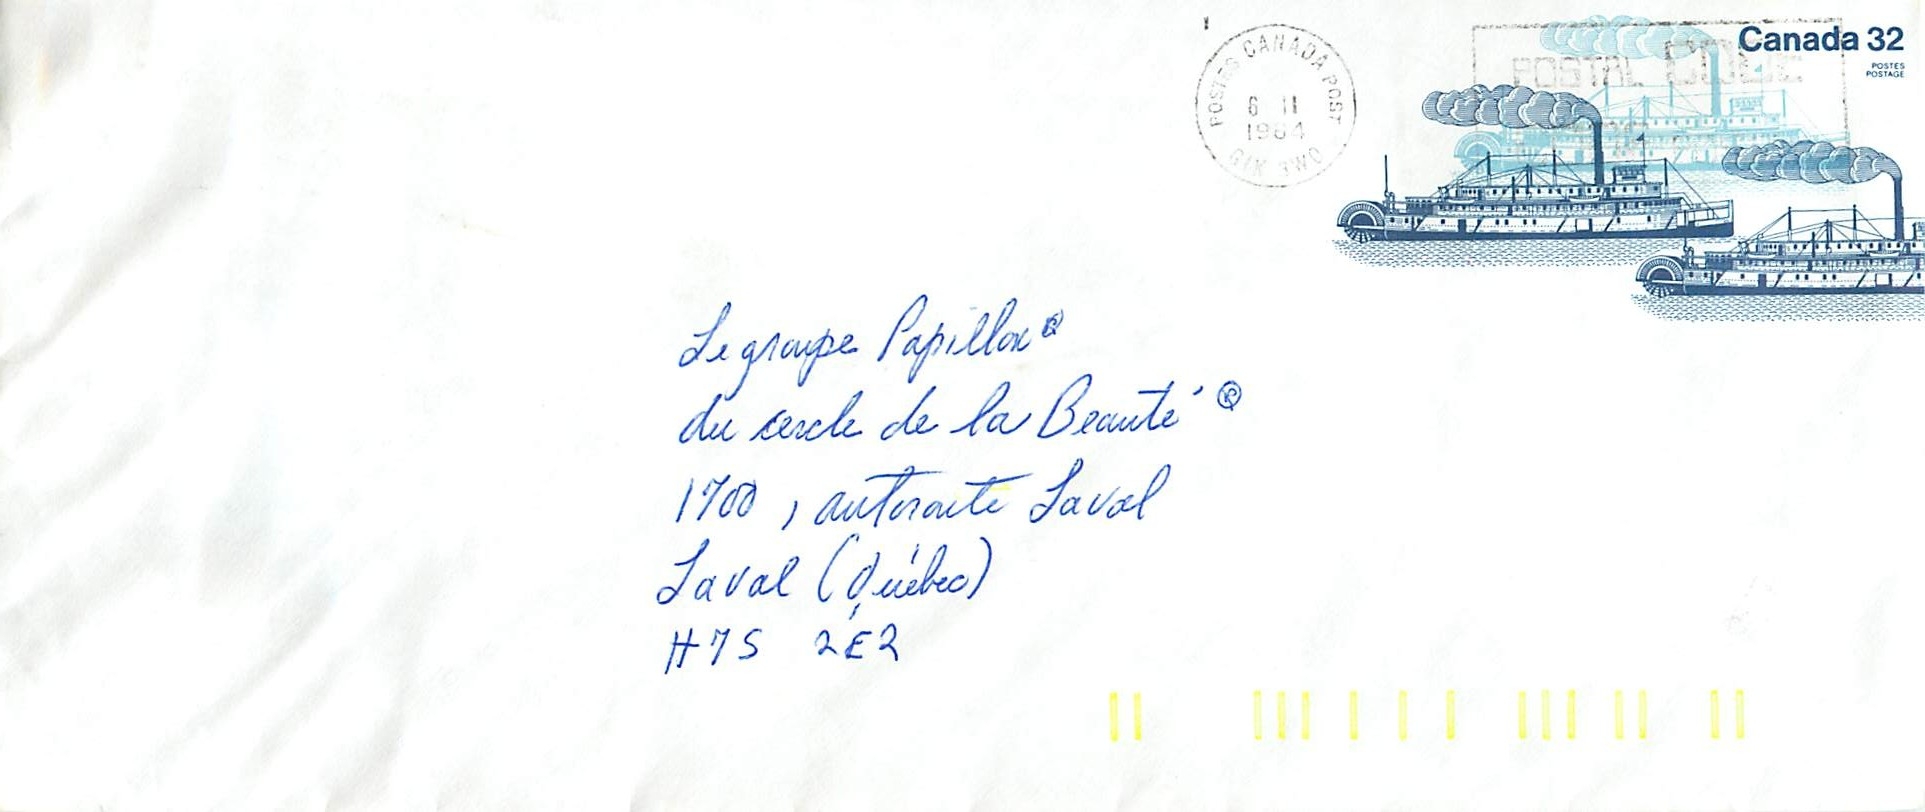 Canada 32
POSTES
POSTAGE
POSTES CANADA POST
6 II
1984
G1K 3W0
POSTAL CODE
Le groupe Papillon ®
du cercle de la Beauté ®
1700, autoroute Laval
Laval (Québec)
H7S 2E2